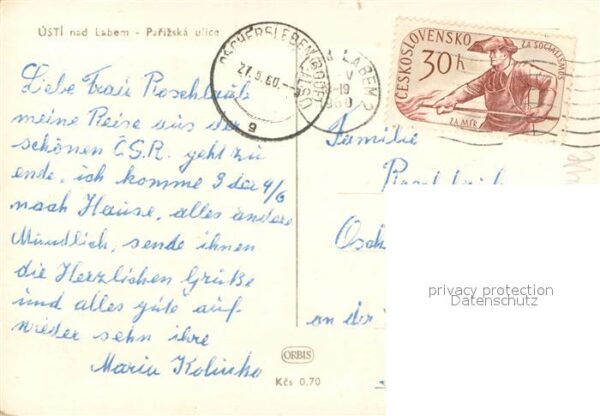 ÚSTÍ nad Labem - Pařížská ulice
Liebe Frau Roschlaub
meine Reise aus der
schönen Č.S.R. geht zu
ende, ich komme
nach Hause, alles andere
Mündlich, sende ihnen
die Herzlichen Grüße
und alles gute auf-
wieder sehn ihre
Maria
ORBIS
Kčs 0,70
OSCHERSLEBEN (BODE)
27.5.60
9
LABEM 2
V
19
1960
ČESKOSLOVENSKO
30h
ZA SOCIALISMUS
ZA MÍR
Familie
an der
privacy protection
Datenschutz